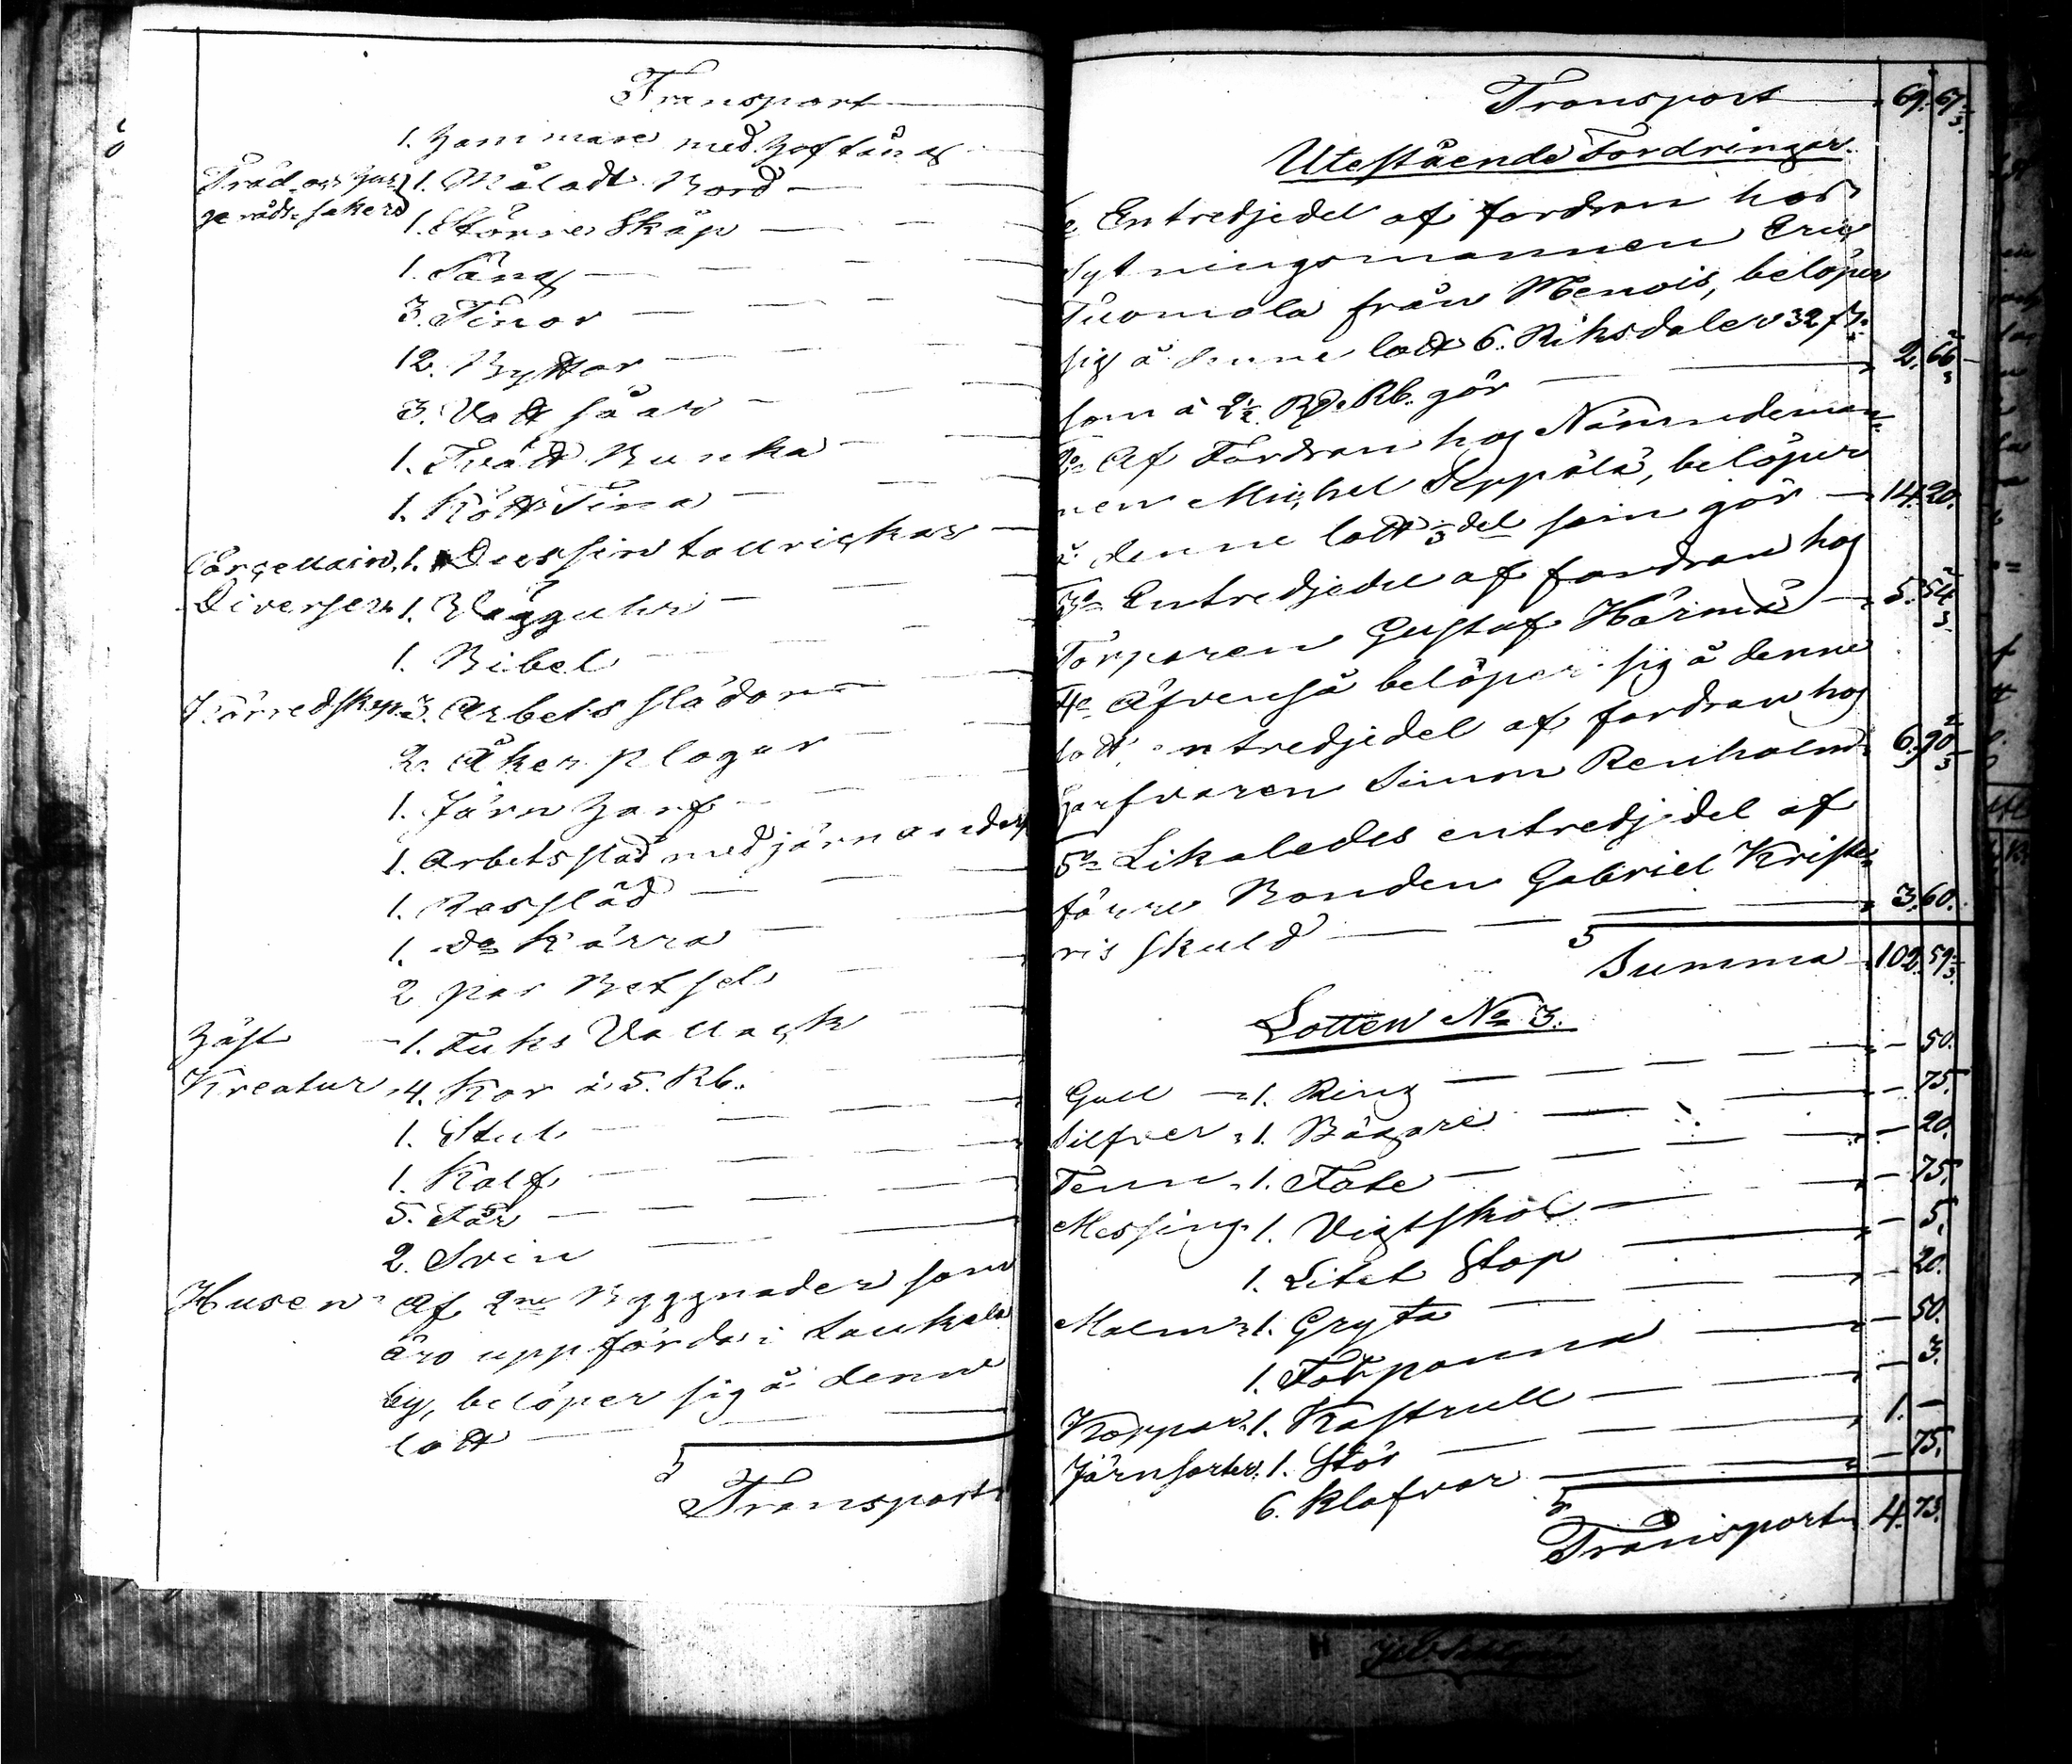 Transport
1. Hammare med Hoftång
Träd och Hus 1. Måladt Bord
geråds saker 1. Större Skåp
1. Säng
3. Tinor
12. Byttor
3. Vatt såar
1. Tvätt Bunka
1. Kött Tina
Porcellain 1. Dussin tallrickar
Diverse 1. Vägguhr
1. Bibel
Körredskap 3. Arbets slädor
2. Åker plogar
1. Järn Harf
1. Arbets släd med järn under
1. Ressläd
1. Do Kärra
2 par Betsel
Häst 1. Fuks Vallack
Kreatur 4. Kor à 5. Rb.
1. Stut
1. Kalf
5. Får
2. Svin
Husen Af 2ne Byggnader som
äro uppförda i Laukala
by, belöper sig å denne
lott
Transport
Transport 69. 67 1/3.
Utestående Fordringar.
Entredjedel af fordran hos
Sytningsmannen Eric
Tuomala från Menois, belöper
sig å denne lott 6. Riksdaler 32 f.
som à 2 1/2 Rd. Rb. gör 2. 66 2/3
2o Af Fordran hos Nämndeman-
nen Michel Seppälä, belöper
å denne lott 1/3 del som gör 14. 20.
3o Entredjedel af fordran hos
Torparen Gustaf Härmä 5. 54 2/3
4o Äfvenså belöper sig å denne
lott, entredjedel af fordran hos
Garfvaren Simon Renholm 6. 90 2/3
5o Likaledes entredjedel af
förre Bonden Gabriel Kriste-
ris skuld 3. 60.
Summa 102. 59 1/3
Lotten No 3.
Gull 1. Ring — 50.
Silfver 1. Bägare — 75.
Tenn 1. Fate — 20.
Messing 1. Vigtskål — 75.
1. Litet Stop — 5.
Malm 1. Gryta — 20.
1. Fotpanna — 50.
Koppar 1. Kastrull — 3.
Järnsorter 1. Stör 1. —
6. Klafvar — 75.
Transport 4. 73.